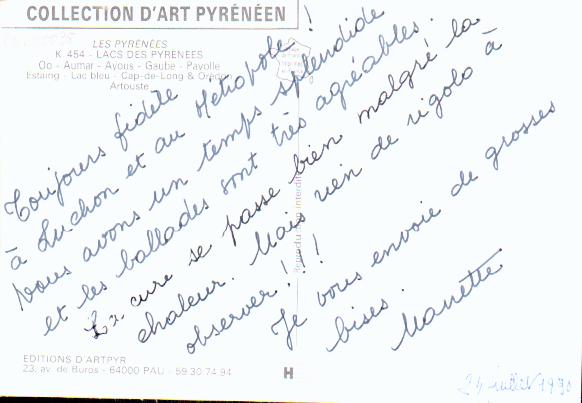 COLLECTION D'ART PYRÉNÉEN
LES PYRÉNÉES
K 454 - LACS DES PYRENEES
Oo - Aumar - Ayous - Gaube - Payolle
Estaing - Lac bleu - Cap-de-Long & Orédon
Artouste
Toujours fidèle
à Luchon et au Métropole !
Nous avons un temps splendide
et les ballades sont très agréables.
La cure se passe bien malgré la
chaleur. Mais rien de rigolo à
observer !!!
Je vous envoie de grosses
bises.
Manette
Reproduction interdite
EDITIONS D'ARTPYR
23, av. de Buros - 64000 PAU - 59 30 74 94
H
juillet 1990